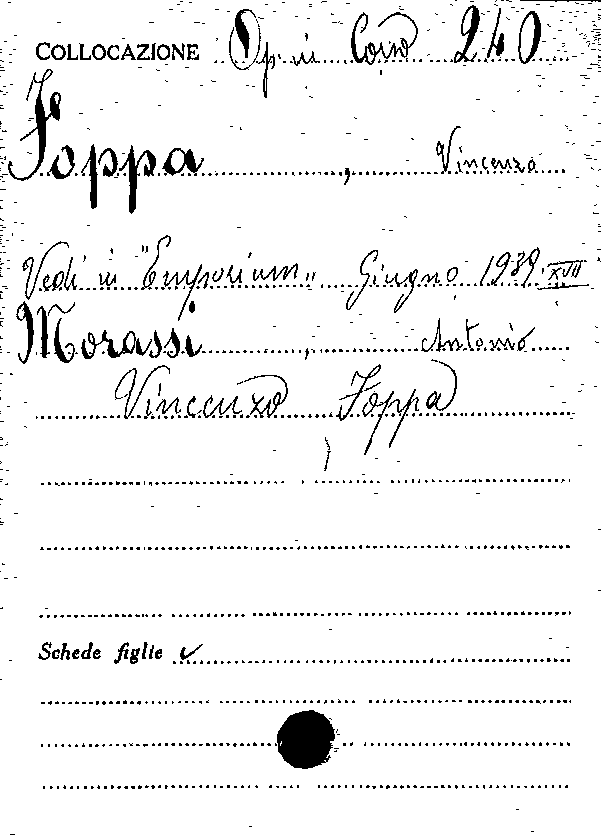 COLLOCAZIONE Op. in Corso 240
Foppa, Vincenzo
Vedi in "Emporium" Giugno 1939 XVII
Morassi, Antonio
Vincenzo Foppa
Schede figlie ✓